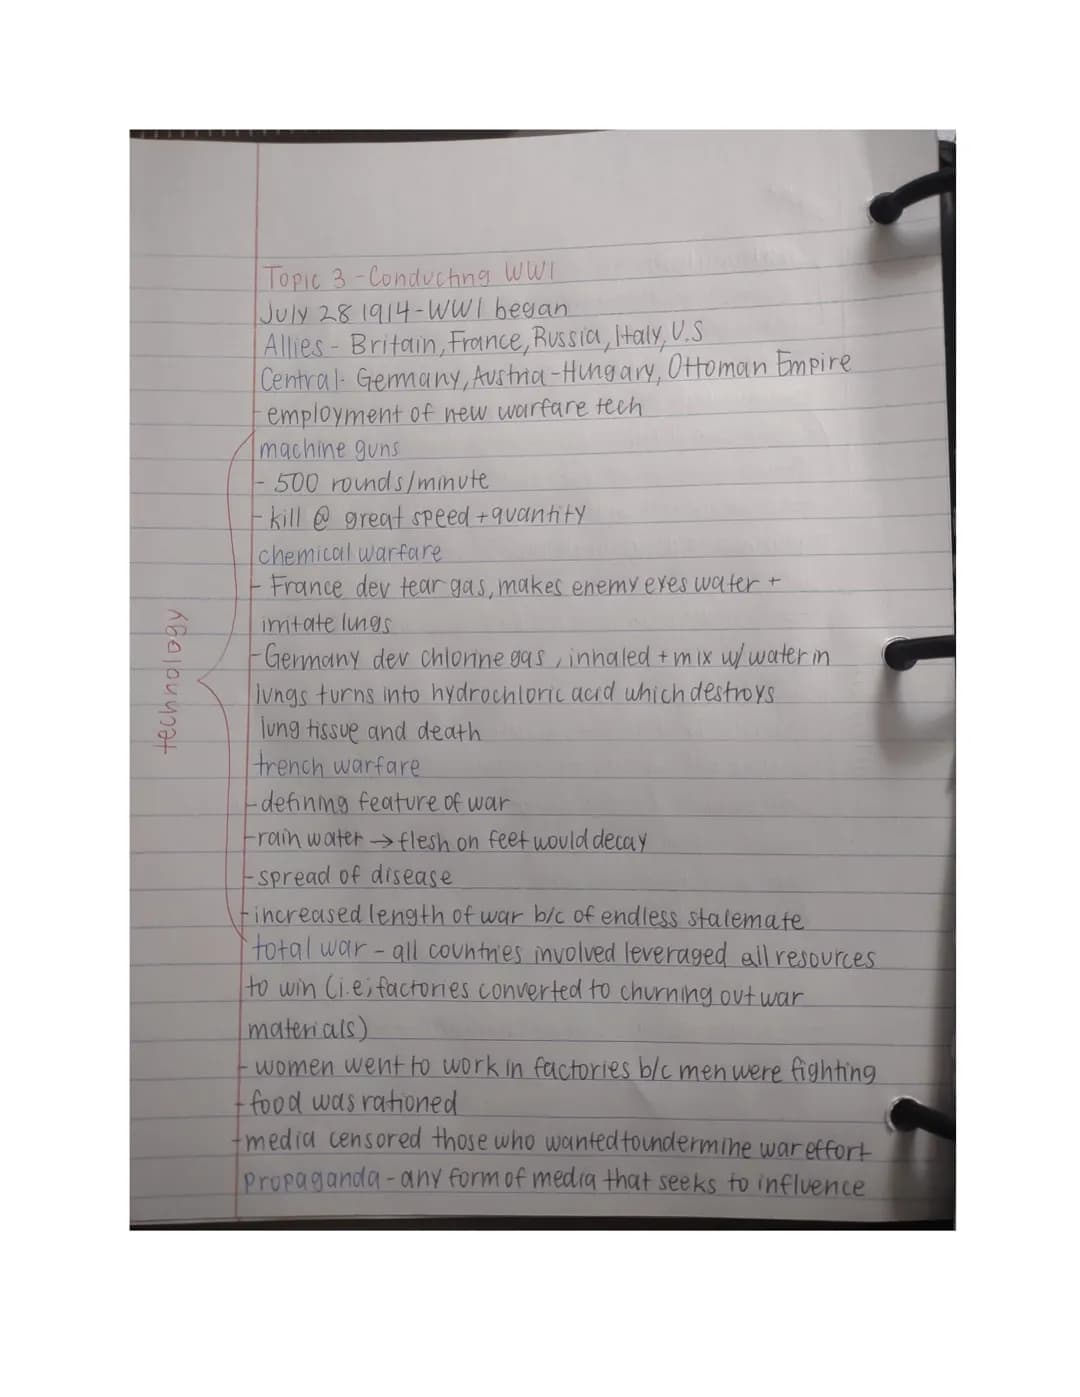 Topic 3 - Conducting WWI
July 28 1914 - WWI began
Allies - Britain, France, Russia, Italy, U.S
Central - Germany, Austria-Hungary, Ottoman Empire
- employment of new warfare tech
machine guns
- 500 rounds/minute
- kill @ great speed + quantity
chemical warfare
- France dev tear gas, makes enemy eyes water +
irritate lungs
- Germany dev chlorine gas, inhaled + mix w/ water in
lungs turns into hydrochloric acid which destroys
lung tissue and death
technology
trench warfare
- defining feature of war
- rain water → flesh on feet would decay
- spread of disease
- increased length of war b/c of endless stalemate
total war - all countries involved leveraged all resources
to win (i.e; factories converted to churning out war
materials)
- women went to work in factories b/c men were fighting
- food was rationed
- media censored those who wanted to undermine war effort
propaganda - any form of media that seeks to influence